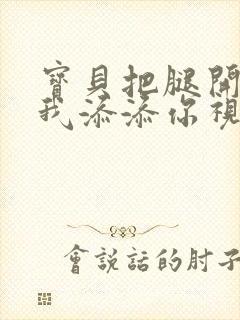 寶貝把腿開
我添添你視
會說話的肘子